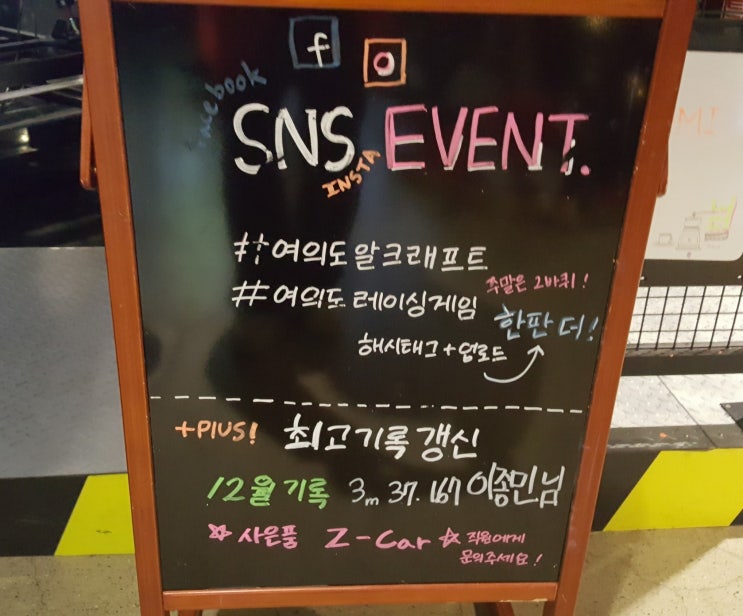 f
facebook
SNS EVENT.
INSTA
#여의도알크래프트
#여의도레이싱게임
주말은 2바퀴!
한판 더!
해시태그+업로드
+PlUS! 최고기록갱신
12월 기록 3m 37. 167 이종민님
☆ 사은품 Z-Car ☆ 직원에게
문의주세요!